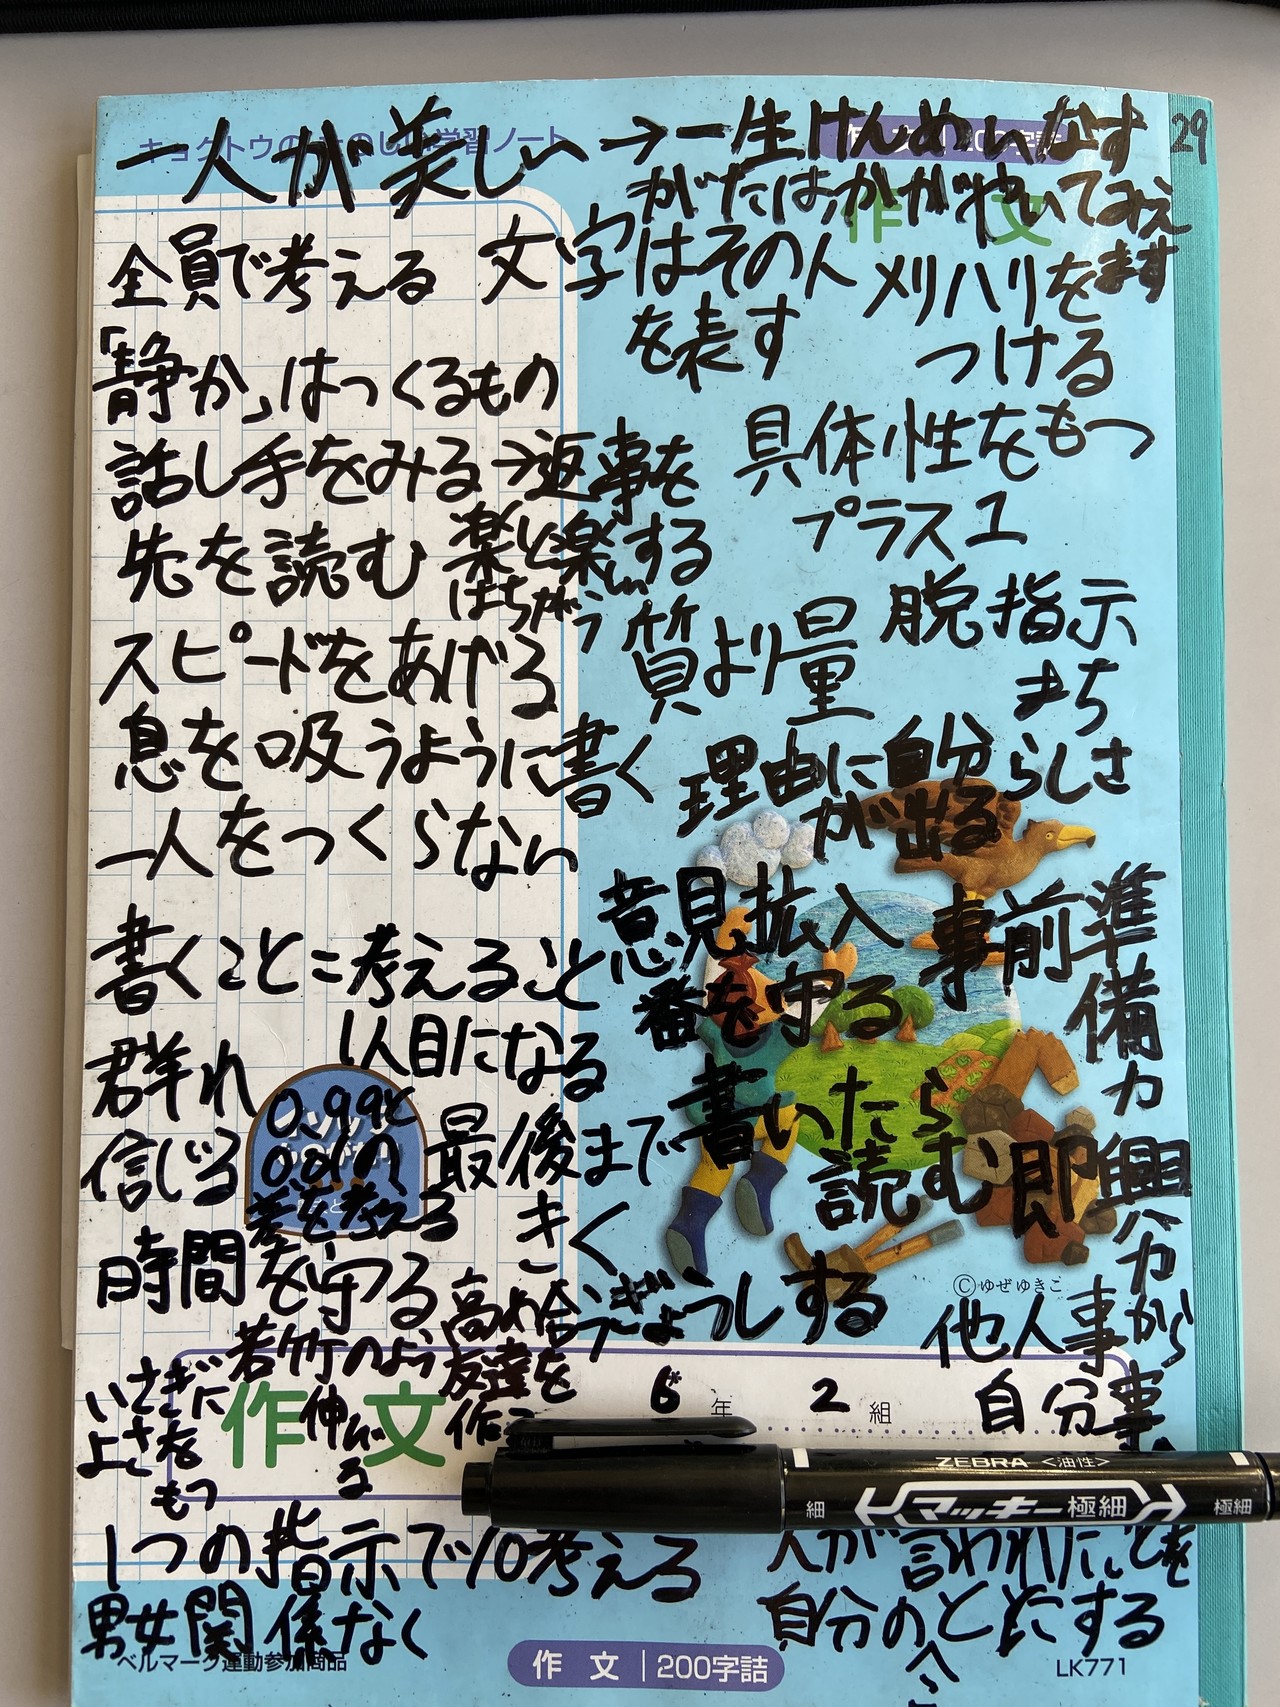 29
一人が美しい→一生けんめいなす
がたは、かがやいてみえ
ます
全員で考える
文字はその人
を表す
メリハリを
つける
「静か」はつくるもの
具体性をもつ
話し手をみる→返事を
する
プラス1
先を読む
楽と楽しい
はちがう
脱指示
まち
質より量
スピードをあげる
息を吸うように書く
理由に自分らしさ
が出る
一人をつくらない
意見拡入
事前準備力
書くこと=考えること
番を守る
1人目になる
群れ
0.99と
0.01の
差を考える
信じる
最後まで
きく
書いたら
読む
即興力
時間を守る
ぎょうしする
若竹のよう
伸びる
高め合う
友達を
いさぎに
よさを
もつ
他人事から
自分事へ
作文
6年 2組
ZEBRA <油性>
細 マッキー極細 極細
1つの指示で10考える
人が言われたことを
自分のことにする
男女関係なく
©ゆぜゆきこ
ベルマーク運動参加商品
作文|200字詰
LK771